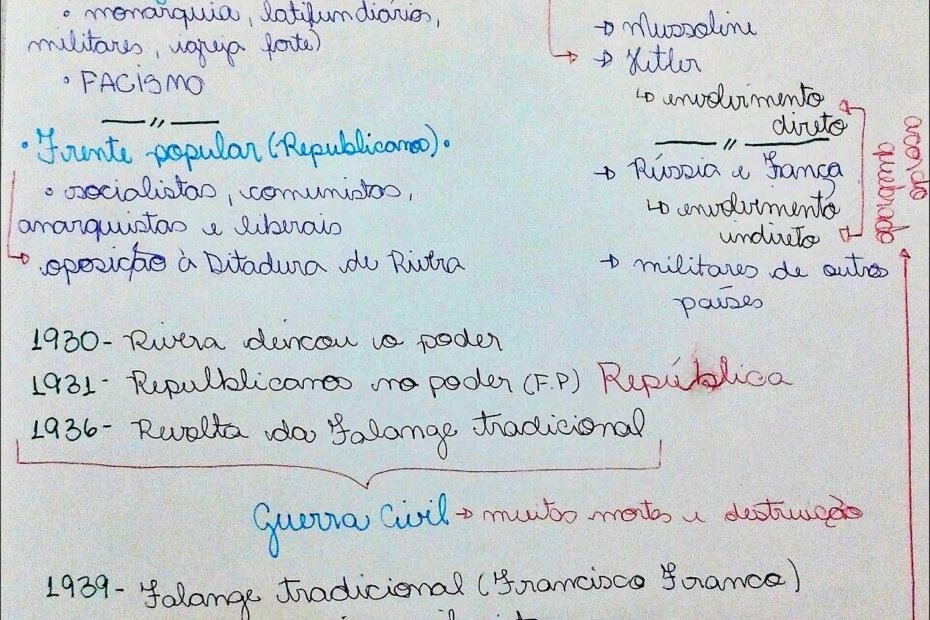 • monarquia, latifundiários,
militares, igreja forte)
• FACISMO
• Frente popular (Republicanos) •
• socialistas, comunistas,
anarquistas e liberais
→ oposição à Ditadura de Rivera
→ Mussoline
→ Hitler
↳ envolvimento
direto
→ Rússia e França
↳ envolvimento
indireto
→ militares de outros
países
acordo
quebrado
1930- Rivera deixou o poder
1931- Republicanos no poder (F.P) República
1936- Revolta da Falange tradicional
Guerra Civil → muitas mortes e destruição
1939- Falange tradicional (Francisco Franco)